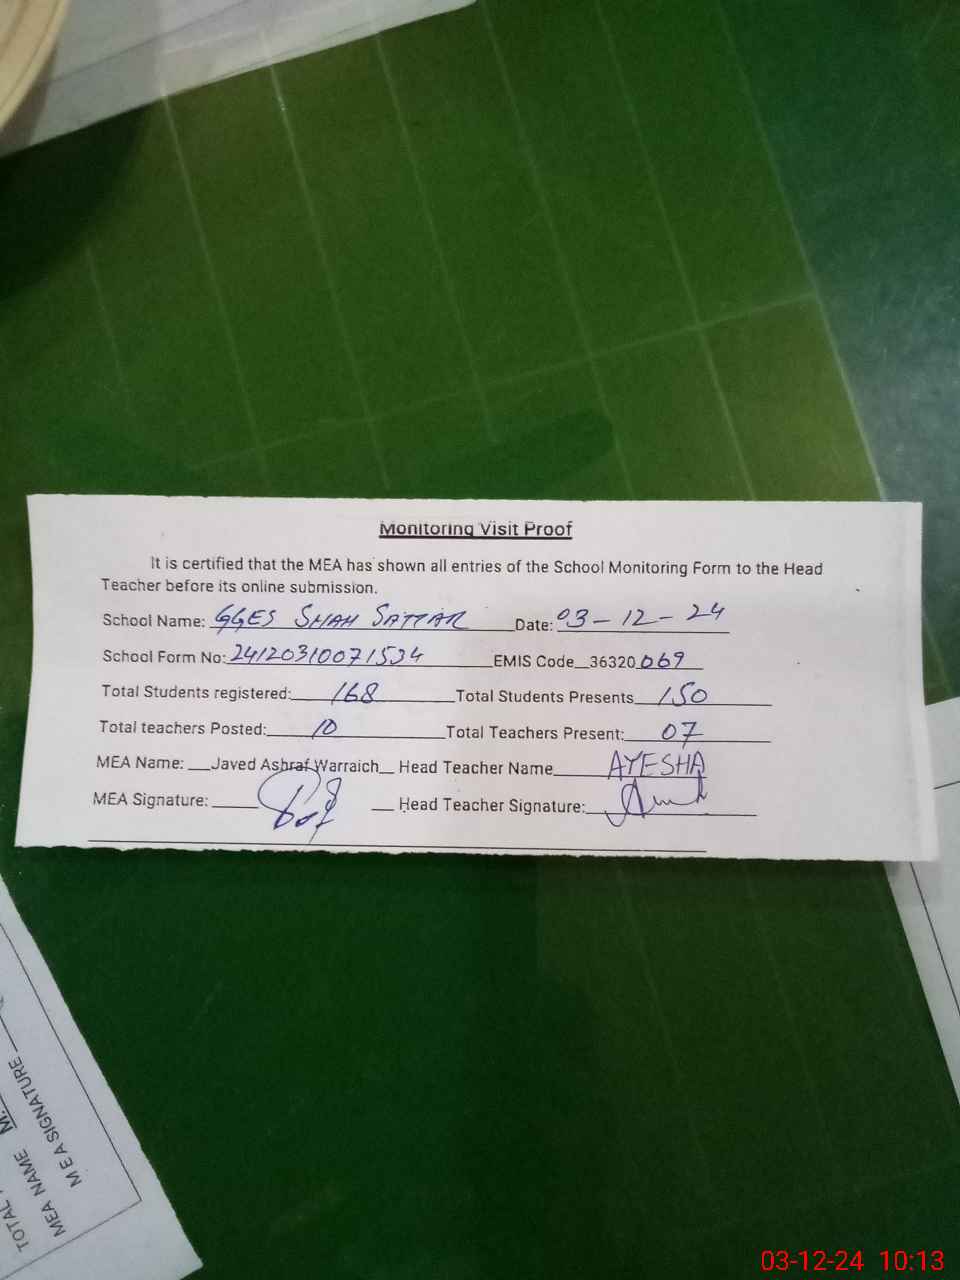 Monitoring Visit Proof
It is certified that the MEA has shown all entries of the School Monitoring Form to the Head
Teacher before its online submission.
School Name: GGES SHAH SATTAR Date: 03-12-24
School Form No: 24120310071534 EMIS Code 36320 069
Total Students registered: 168 Total Students Presents 150
Total teachers Posted: 10 Total Teachers Present: 07
MEA Name: Javed Ashraf Warraich Head Teacher Name AYESHA
MEA Signature: Head Teacher Signature:
TOTAL
MEA NAME M.
MEA SIGNATURE
03-12-24 10:13